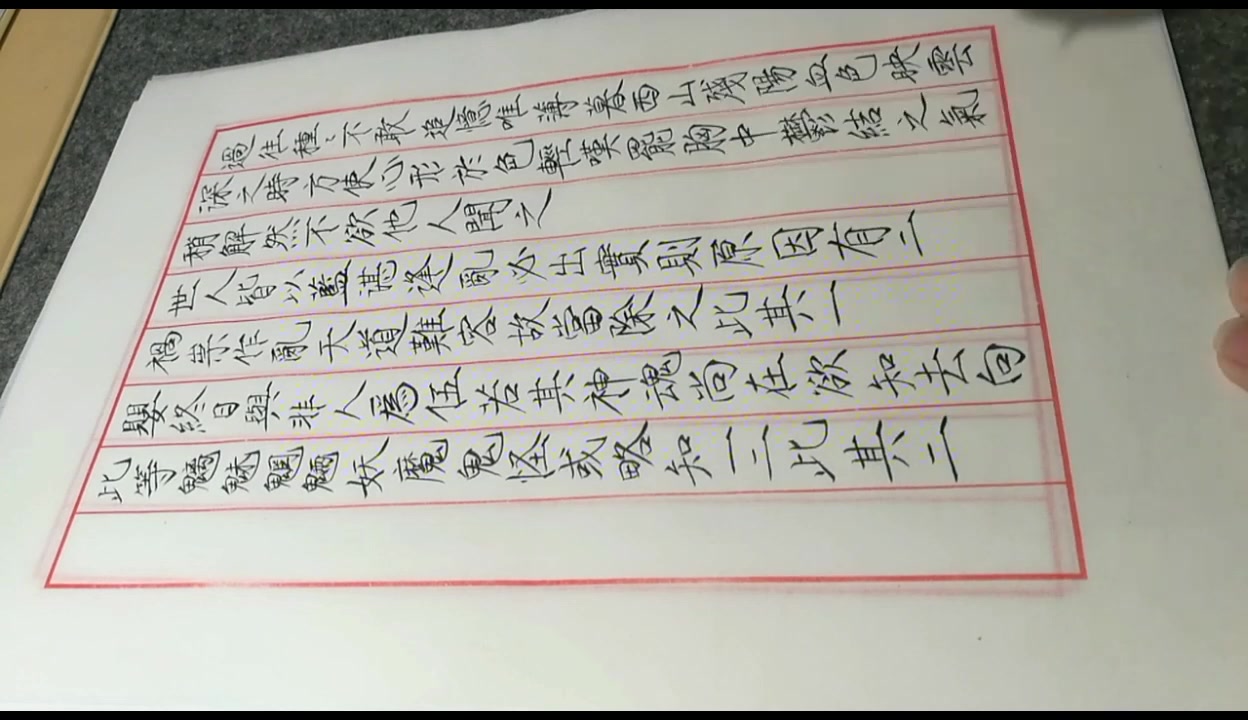 過往種種不敢追憶唯薄暮西山殘陽血色映雲
深之時方使心形於色輕嘆罷胸中鬱結之氣
稍解然不欲他人聞之
世人皆以藍湛逢亂必出實則原因有二
禍祟作亂天道難容故當除之此其一
嬰終日與非人為伍若其神魂尚在欲知去向
此等魑魅魍魎妖魔鬼怪或略知一二此其二